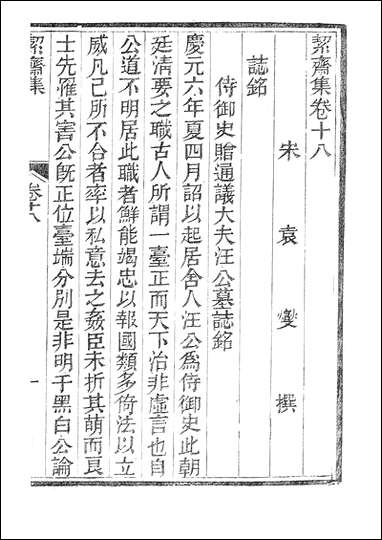 絜齋集卷十八
宋 袁燮 撰
誌銘
侍御史贈通議大夫汪公墓誌銘
慶元六年夏四月詔以起居舍人汪公為侍御史此朝
廷清要之職古人所謂一臺正而天下治非虛言也自
公道不明居此職者鮮能竭忠以報國類多倚法以立
威凡己所不合者率以私意去之姦臣未折其萌而良
士先罹其害公旣正位臺端分別是非明于黑白公論
絜齋集
卷十八
一